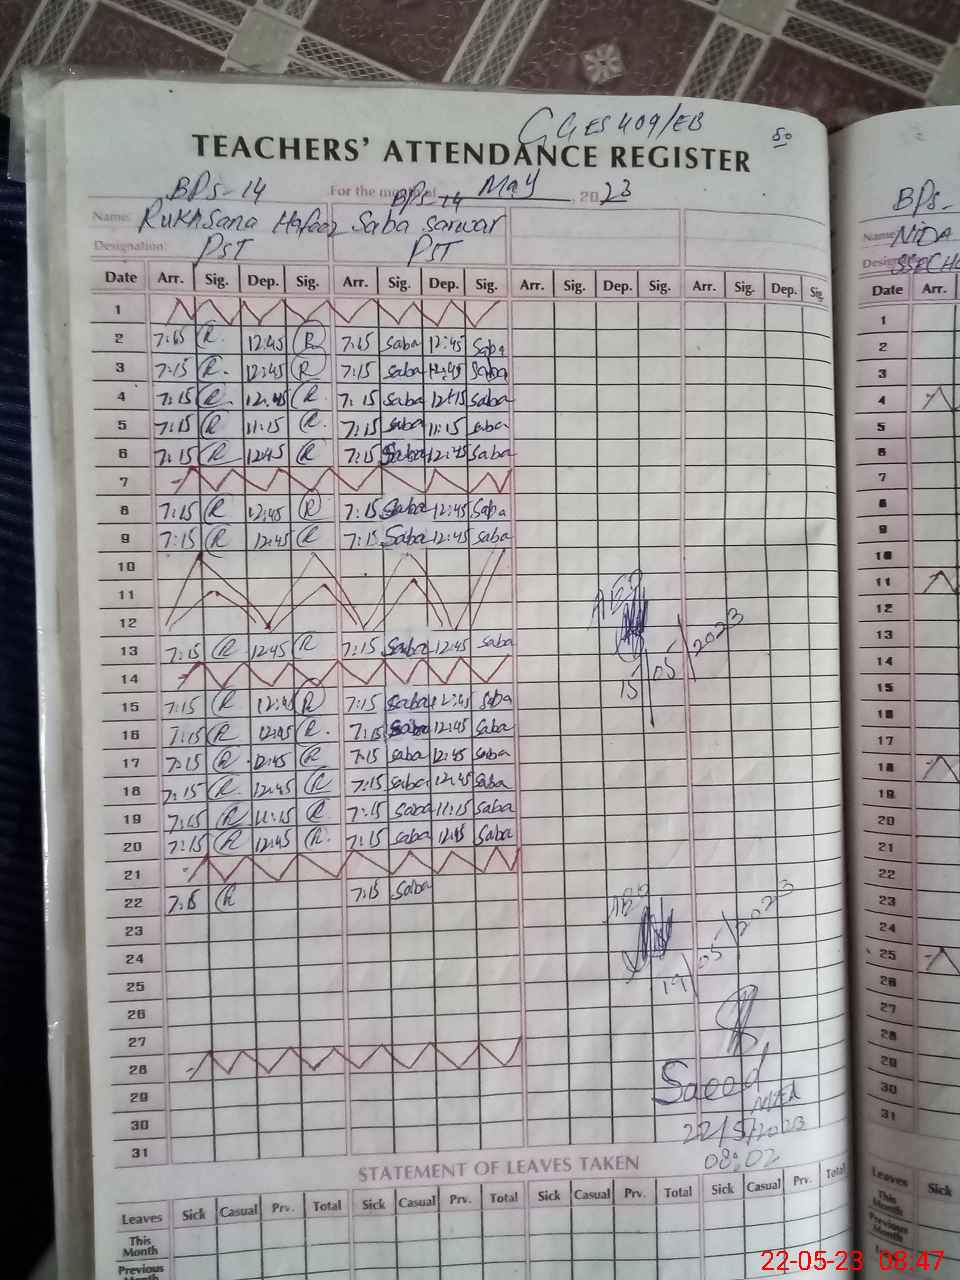 GGES 409/EB
50
TEACHERS' ATTENDANCE REGISTER
BPS-14 For the month of May, 2023
BPS-14
Name: Rukhsana Hafeez Saba Sarwar
Designation: PST PST
Date Arr. Sig. Dep. Sig. Arr. Sig. Dep. Sig. Arr. Sig. Dep. Sig. Arr. Sig. Dep. Sig.
1
2 7:15 R 12:45 R 7:15 saba 12:45 saba
3 7:15 R 12:45 R 7:15 saba 12:45 saba
4 7:15 R 12:45 R 7:15 saba 12:45 saba
5 7:15 R 11:15 R 7:15 saba 11:15 saba
6 7:15 R 12:45 R 7:15 Saba 12:45 saba
7
8 7:15 R 12:45 R 7:15 Saba 12:45 Saba
9 7:15 R 12:45 R 7:15 Saba 12:45 saba
10
11
12
13 7:15 R 12:45 R 7:15 Saba 12:45 saba
14
15 7:15 R 12:45 R 7:15 saba 12:45 saba
16 7:15 R 12:45 R 7:15 saba 12:45 saba
17 7:15 R 12:45 R 7:15 saba 12:45 saba
18 7:15 R 12:45 R 7:15 saba 12:45 saba
19 7:15 R 11:15 R 7:15 saba 11:15 saba
20 7:15 R 12:45 R 7:15 saba 12:45 saba
21
22 7:15 R 7:15 saba
23
24
25
26
27
28
29
30
31
15/05/2023
19/05/2023
Saeed
MEA
22/5/2023
08:02
STATEMENT OF LEAVES TAKEN
Leaves Sick Casual Prv. Total Sick Casual Prv. Total Sick Casual Prv. Total Sick Casual Prv. Total
This Month
Previous Month
BPS-
Name NIDA
Date Arr.
1
2
3
4
5
6
7
8
9
10
11
12
13
14
15
16
17
18
19
20
21
22
23
24
25
26
27
28
29
30
31
Leaves Sick
This Month
Previous Month
22-05-23 08:47